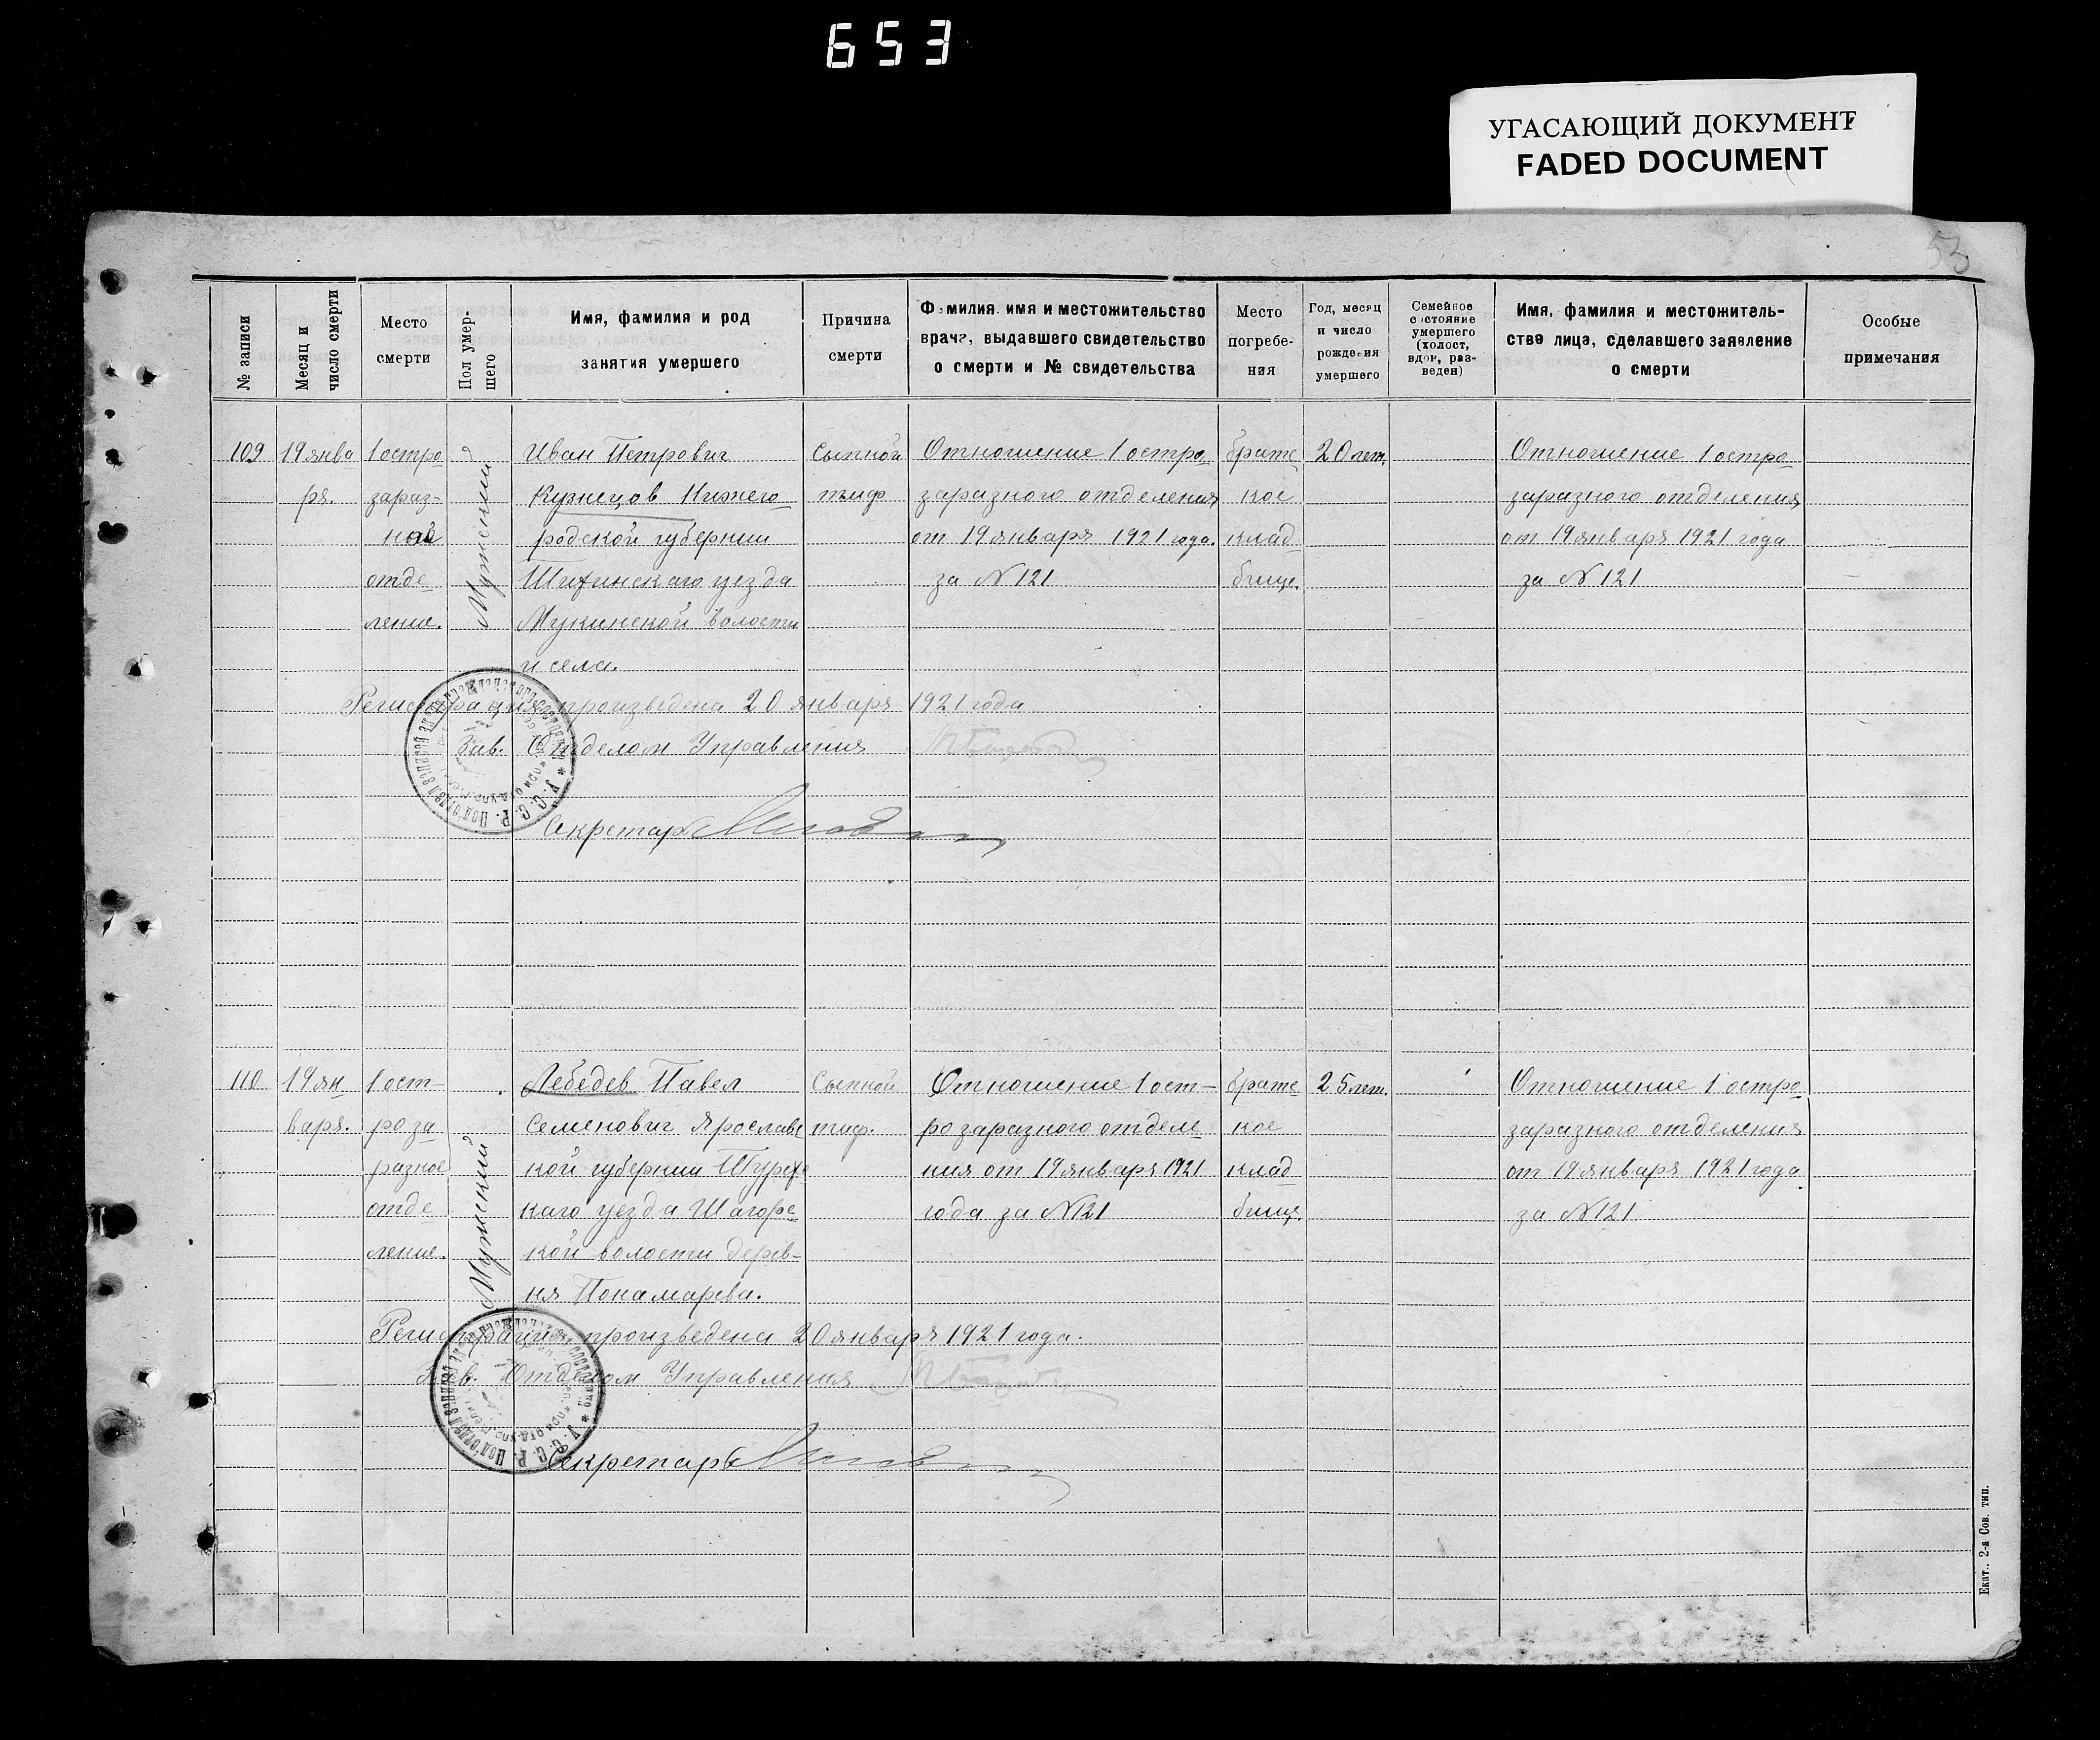 653
УГАСАЮЩИЙ ДОКУМЕНТ
FADED DOCUMENT
53
№ записи
Месяц и
число смерти
Место
смерти
Пол умер-
шего
Имя, фамилия и род
занятия умершего
Причина
смерти
Фамилия. имя и местожительство
врача, выдавшего свидетельство
о смерти и № свидетельства
Место
погребе-
ния
Год, месяц
и число
рождения
умершего
Семейное
состояние
умершего
(холост,
вдов, раз-
веден)
Имя, фамилия и местожитель-
ство лица, сделавшего заявление
о смерти
Особые
примечания
109
19 янва
ря.
1 остро
зараз-
ное
отде
ление.
Мужской
Иван Петрович
Кузнецов Нижего
родской губернии
уезда
Мукинской волости
и села.
Сыпной
тиф
Отношение 1 остро
заразного отделения
от 19 января 1921 года.
за N 121
братс
кое
клад
бище.
20 лет.
Отношение 1 остро
заразного отделения
от 19 января 1921 года
за N 121
Регистрация произведена 20 января 1921 года
Зав. Отделом Управления
Секретарь
110
19 ян
варя.
1 ост-
ро за
разное
отде
ление.
Мужской
Лебедев Павел
Семенович Ярославс
кой губернии
каго уезда
кой волости дерев-
ня Понамарева.
Сыпной
тиф.
Отношение 1 ост-
ро заразного отделе
ния от 19 января 1921
года за N 121
братс
кое
клад
бище.
25 лет.
Отношение 1 остро
заразного отделения
от 19 января 1921 года
за N 121
Регистрация произведена 20 января 1921 года.
Зав. Отделом Управления
Секретарь
Екат.. 2-я Сов. тип.